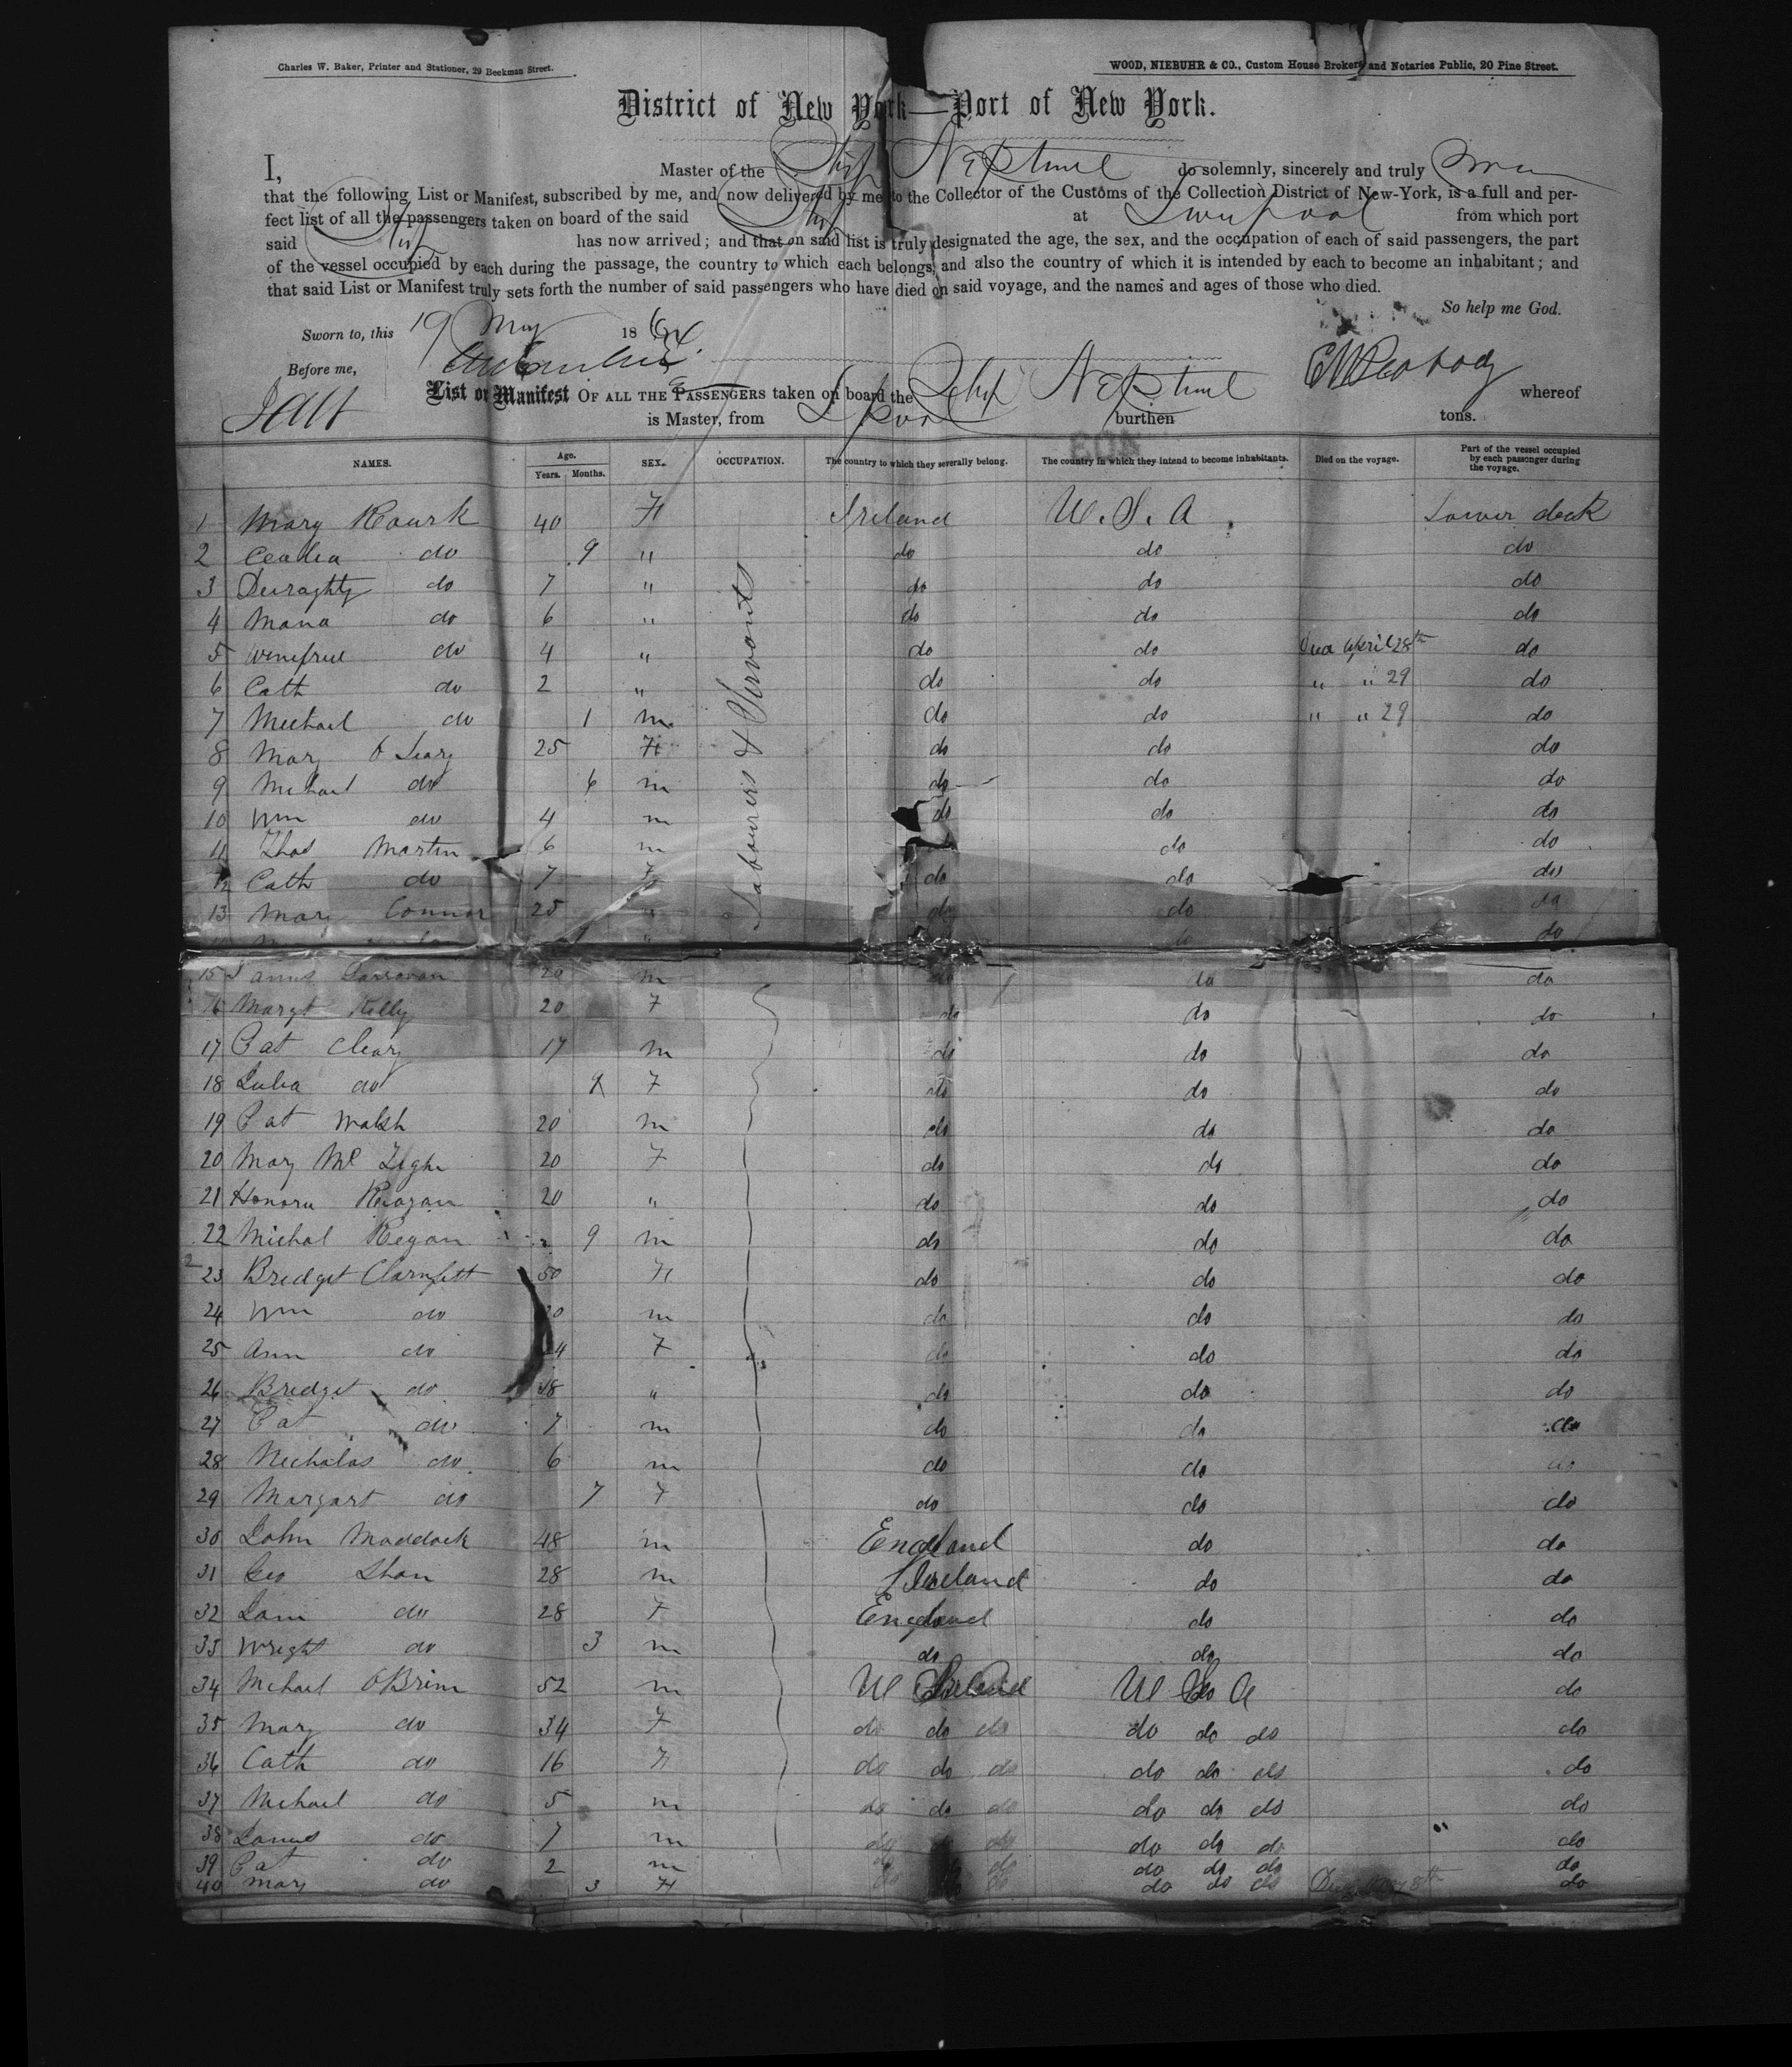 Charles W. Baker, Printer and Stationer, 29 Beekman Street.
WOOD, NIEBUHR & CO., Custom House Brokers and Notaries Public, 20 Pine Street.
District of New York—Port of New York.
I, Master of the Ship Neptune do solemnly, sincerely and truly
that the following List or Manifest, subscribed by me, and now delivered by me to the Collector of the Customs of the Collection District of New-York, is a full and per-
fect list of all the passengers taken on board of the said Ship at Liverpool from which port
said Ship has now arrived; and that on said list is truly designated the age, the sex, and the occupation of each of said passengers, the part
of the vessel occupied by each during the passage, the country to which each belongs, and also the country of which it is intended by each to become an inhabitant; and
that said List or Manifest truly sets forth the number of said passengers who have died on said voyage, and the names and ages of those who died.
So help me God.
Sworn to, this 19 May 1864
Before me,
E W Peabody
List or Manifest OF ALL THE PASSENGERS taken on board the Ship Neptune whereof
is Master, from Lpool burthen tons.
NAMES. Age. Years. Months. SEX. OCCUPATION. The country to which they severally belong. The country in which they intend to become inhabitants. Died on the voyage. Part of the vessel occupied by each passenger during the voyage.
Labourers & Servants
1 Mary Rourk 40 F Ireland U.S.A. Lower deck
2 do 9 " do do do
3 do 7 " do do do
4 Maria do 6 " do do do
5 do 4 " do do Died April 28th do
6 Cath do 2 " do do " " 29 do
7 Michael do 1 m do do " " 29 do
8 Mary O Leary 25 F do do do
9 Michael do 6 m do do do
10 Wm do 4 m do do do
11 Thos Martin 6 m do do do
12 Cath do 7 F do do do
13 Mary Connor 25 " do do do
do do
15 James 20 m do do do
16 Margt Kelly 20 F do do do
17 Pat Cleary 17 m do do do
18 Julia do F do do do
19 Pat Walsh 20 m do do do
20 Mary Mc Tighe 20 F do do do
21 Honora Reagan 20 " do do do
22 Michal Regan 9 m do do do
23 Bridget 50 F do do do
24 Wm do m do do do
25 Ann do F do do do
26 Bridget do 18 " do do do
27 Pat do 7 m do do do
28 Nicholas do 6 m do do do
29 Margart do 7 F do do do
30 John Maddock 48 m England do do
31 Geo Shan 28 m Ireland do do
32 Jani do 28 F England do do
33 Wright do 3 m do do do
34 Michael OBrien 52 m Ireland U S A do
35 Mary do 34 F do do do do do do do
36 Cath do 16 F do do do do do do do
37 Michael do 5 m do do do do do do do
38 James do 7 m do do do do do do do
39 Pat do 2 m do do do do do do
40 Mary do 3 F do do do do do do